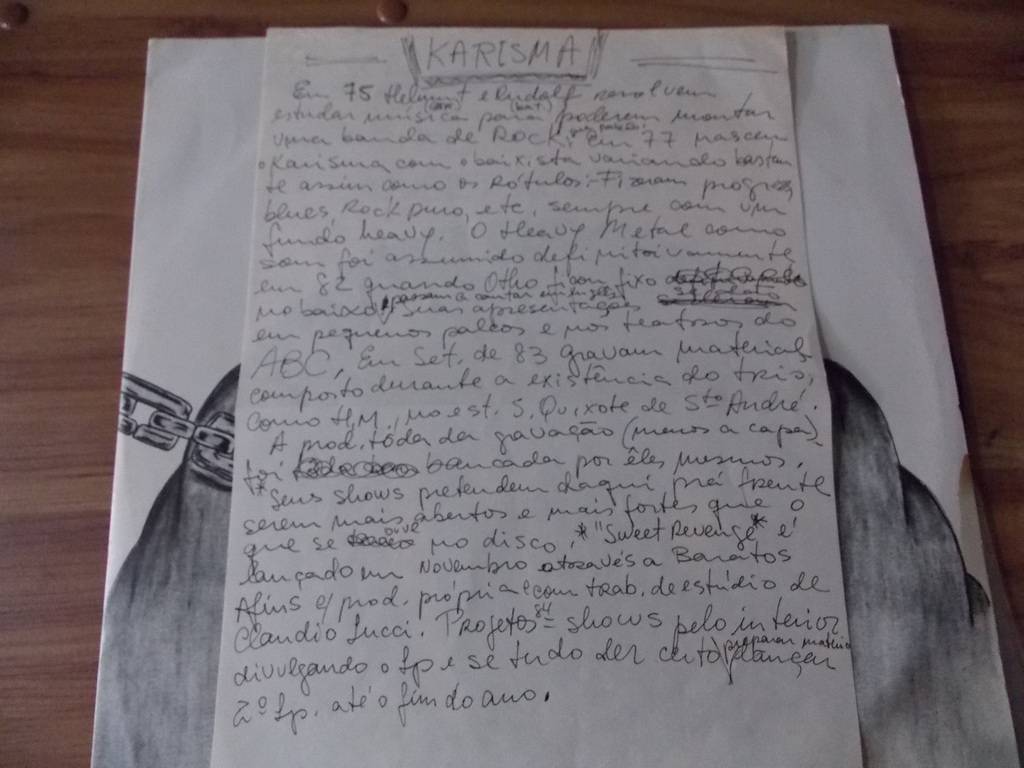 KARISMA
Em 75 Helmut e Rudolf resolvem
(bat.)
estudar música para poderem montar
uma banda de Rock; em 77 nasceu
o Karisma com o baixista variando bastan
te assim como os Rótulos: Fizeram progres,
blues, Rock puro, etc, sempre com um
fundo heavy. O Heavy Metal como
som foi assumido definitivamente
em 82 quando Otho ficou fixo
no baixo, passam a contar suas apresentações
em pequenos palcos e nos teatros do
ABC, Em Set. de 83 gravam material
composto durante a existência do trio,
como H.M., no est. S. Quixote de Sto André.
A prod. tôda da gravação (menos a capa)
foi bancada por êles mesmos.
*Seus shows pretendem daqui prá frente
serem mais abertos e mais fortes que o
que se ouve no disco.* "Sweet Revenge" é
lançado em Novembro através a Baratos
Afins c/ prod. própria e com trab. de estúdio de
Claudio Lucci. Projetos 84 = shows pelo interior
divulgando o Lp e se tudo der certo preparar material p/ lançar
2º Lp. até o fim do ano.